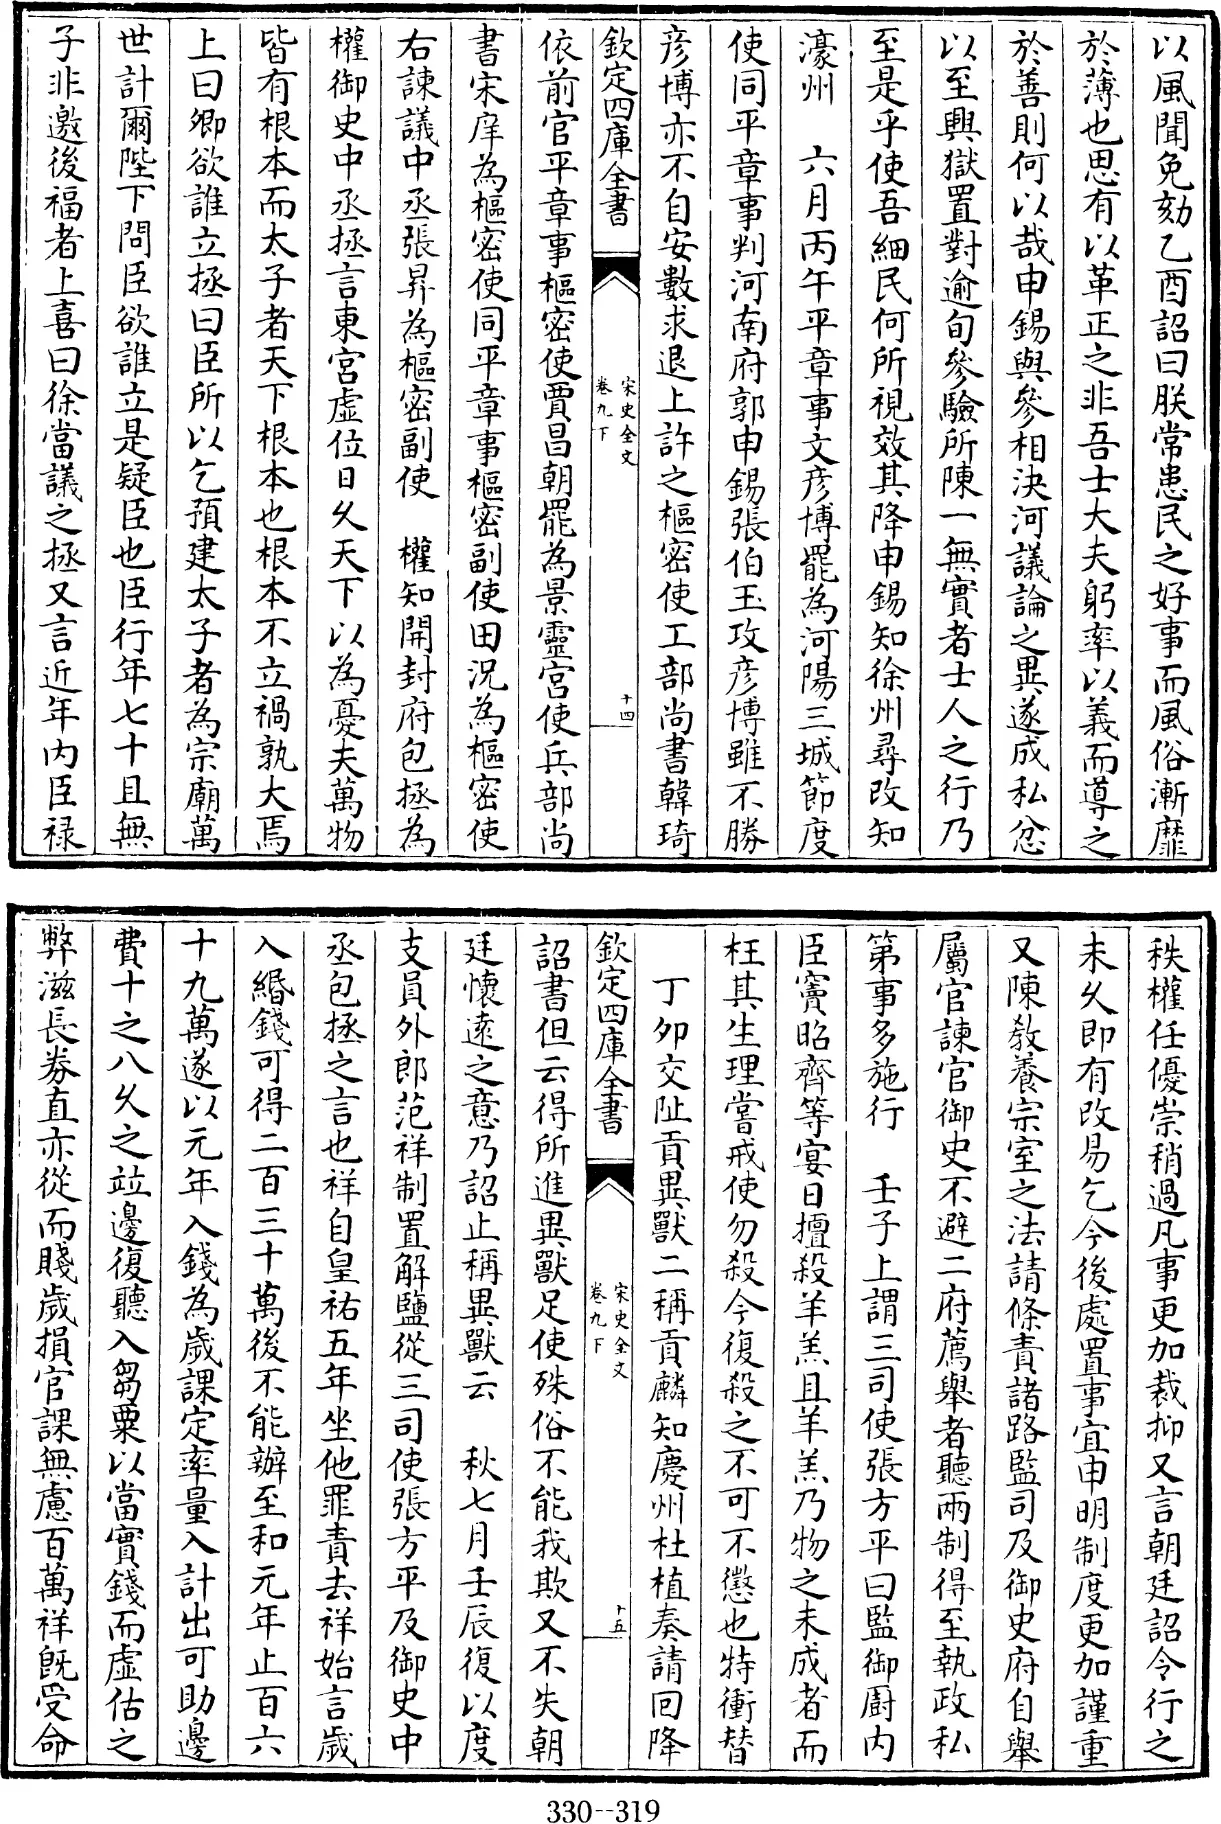 以風聞免劾乙酉詔曰朕常患民之好事而風俗漸靡
於薄也思有以革正之非吾士大夫躬率以義而導之
於善則何以哉申錫與參相決河議論之異遂成私忿
以至興獄置對逾旬參驗所陳一無實者士人之行乃
至是乎使吾細民何所視效其降申錫知徐州尋改知
濠州　六月丙午平章事文彦博罷為河陽三城節度
使同平章事判河南府郭申錫張伯玉攻彦博雖不勝
彦博亦不自安數求退上許之樞密使工部尚書韓琦
欽定四庫全書
宋史全文
卷九下
十四
依前官平章事樞密使賈昌朝罷為景靈宮使兵部尚
書宋庠為樞密使同平章事樞密副使田況為樞密使
右諫議中丞張昇為樞密副使　權知開封府包拯為
權御史中丞拯言東宮虛位日乆天下以為憂夫萬物
皆有根本而太子者天下根本也根本不立禍孰大焉
上曰卿欲誰立拯曰臣所以乞預建太子者為宗廟萬
世計爾陛下問臣欲誰立是疑臣也臣行年七十且無
子非邀後福者上喜曰徐當議之拯又言近年内臣禄
秩權任優崇稍過凡事更加裁抑又言朝廷詔令行之
未乆即有改易乞今後處置事宜申明制度更加謹重
又陳教養宗室之法請條責諸路監司及御史府自舉
屬官諫官御史不避二府薦舉者聽兩制得至執政私
第事多施行　壬子上謂三司使張方平曰監御厨内
臣竇昭齊等宴日擅殺羊羔且羊羔乃物之未成者而
枉其生理嘗戒使勿殺今復殺之不可不懲也特衝替
丁卯交阯貢異獸二稱貢麟知慶州杜植奏請回降
欽定四庫全書
宋史全文
卷九下
十五
詔書但云得所進異獸足使殊俗不能我欺又不失朝
廷懷遠之意乃詔止稱異獸云　秋七月壬辰復以度
支員外郎范祥制置解鹽從三司使張方平及御史中
丞包拯之言也祥自皇祐五年坐他罪責去祥始言歲
入緡錢可得二百三十萬後不能辦至和元年止百六
十九萬遂以元年入錢為歲課定率量入計出可助邊
費十之八乆之竝邊復聽入芻粟以當實錢而虛估之
弊滋長券直亦從而賤歲損官課無慮百萬祥既受命
330--319